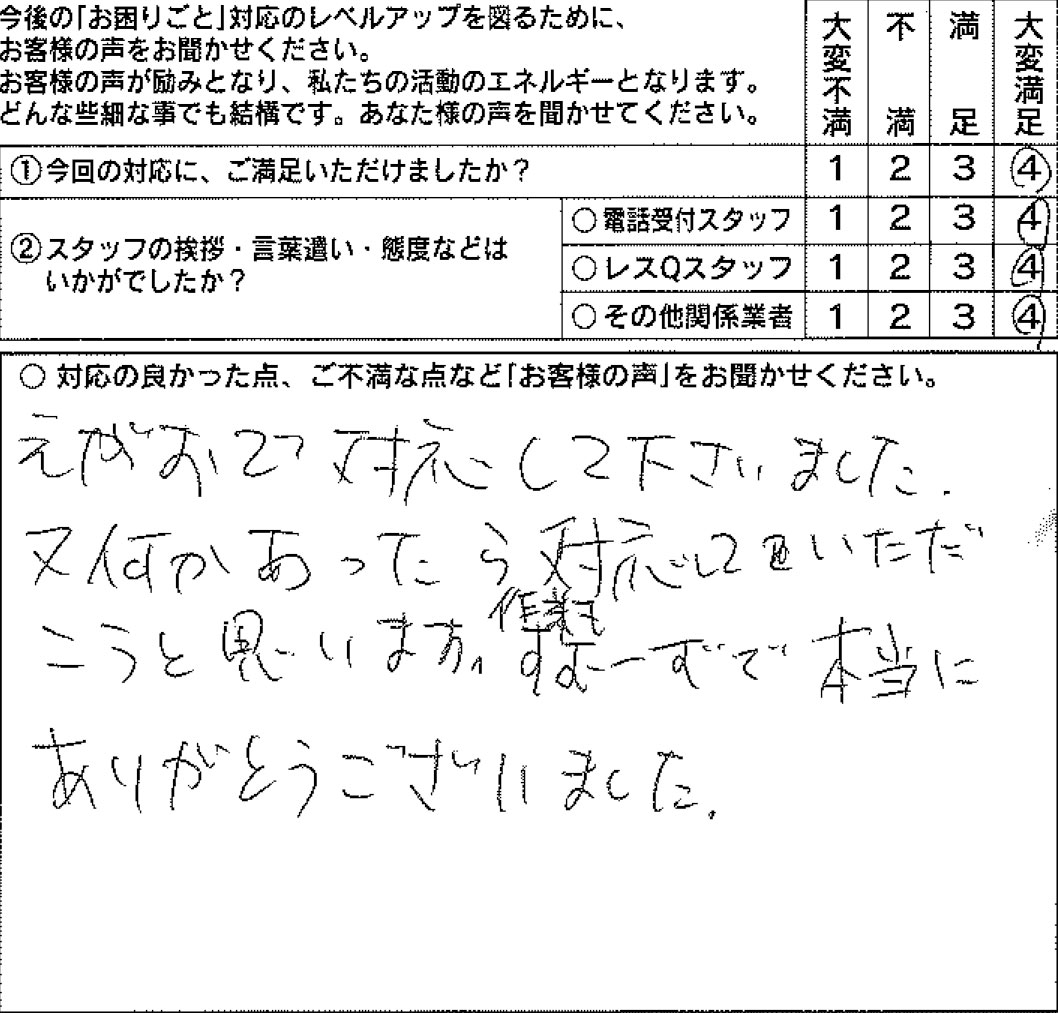 今後の「お困りごと」対応のレベルアップを図るために、
お客様の声をお聞かせください。
お客様の声が励みとなり、私たちの活動のエネルギーとなります。
どんな些細な事でも結構です。あなた様の声を聞かせてください。
大変不満 不満 満足 大変満足
①今回の対応に、ご満足いただけましたか？ 1 2 3 4
②スタッフの挨拶・言葉遣い・態度などは
いかがでしたか？
○電話受付スタッフ 1 2 3 4
○レスQスタッフ 1 2 3 4
○その他関係業者 1 2 3 4
○ 対応の良かった点、ご不満な点など「お客様の声」をお聞かせください。
えがおで対応して下さいました.
又何かあったら対応していただ
こうと思います。作業も
すむーずで本当に
ありがとうございました.